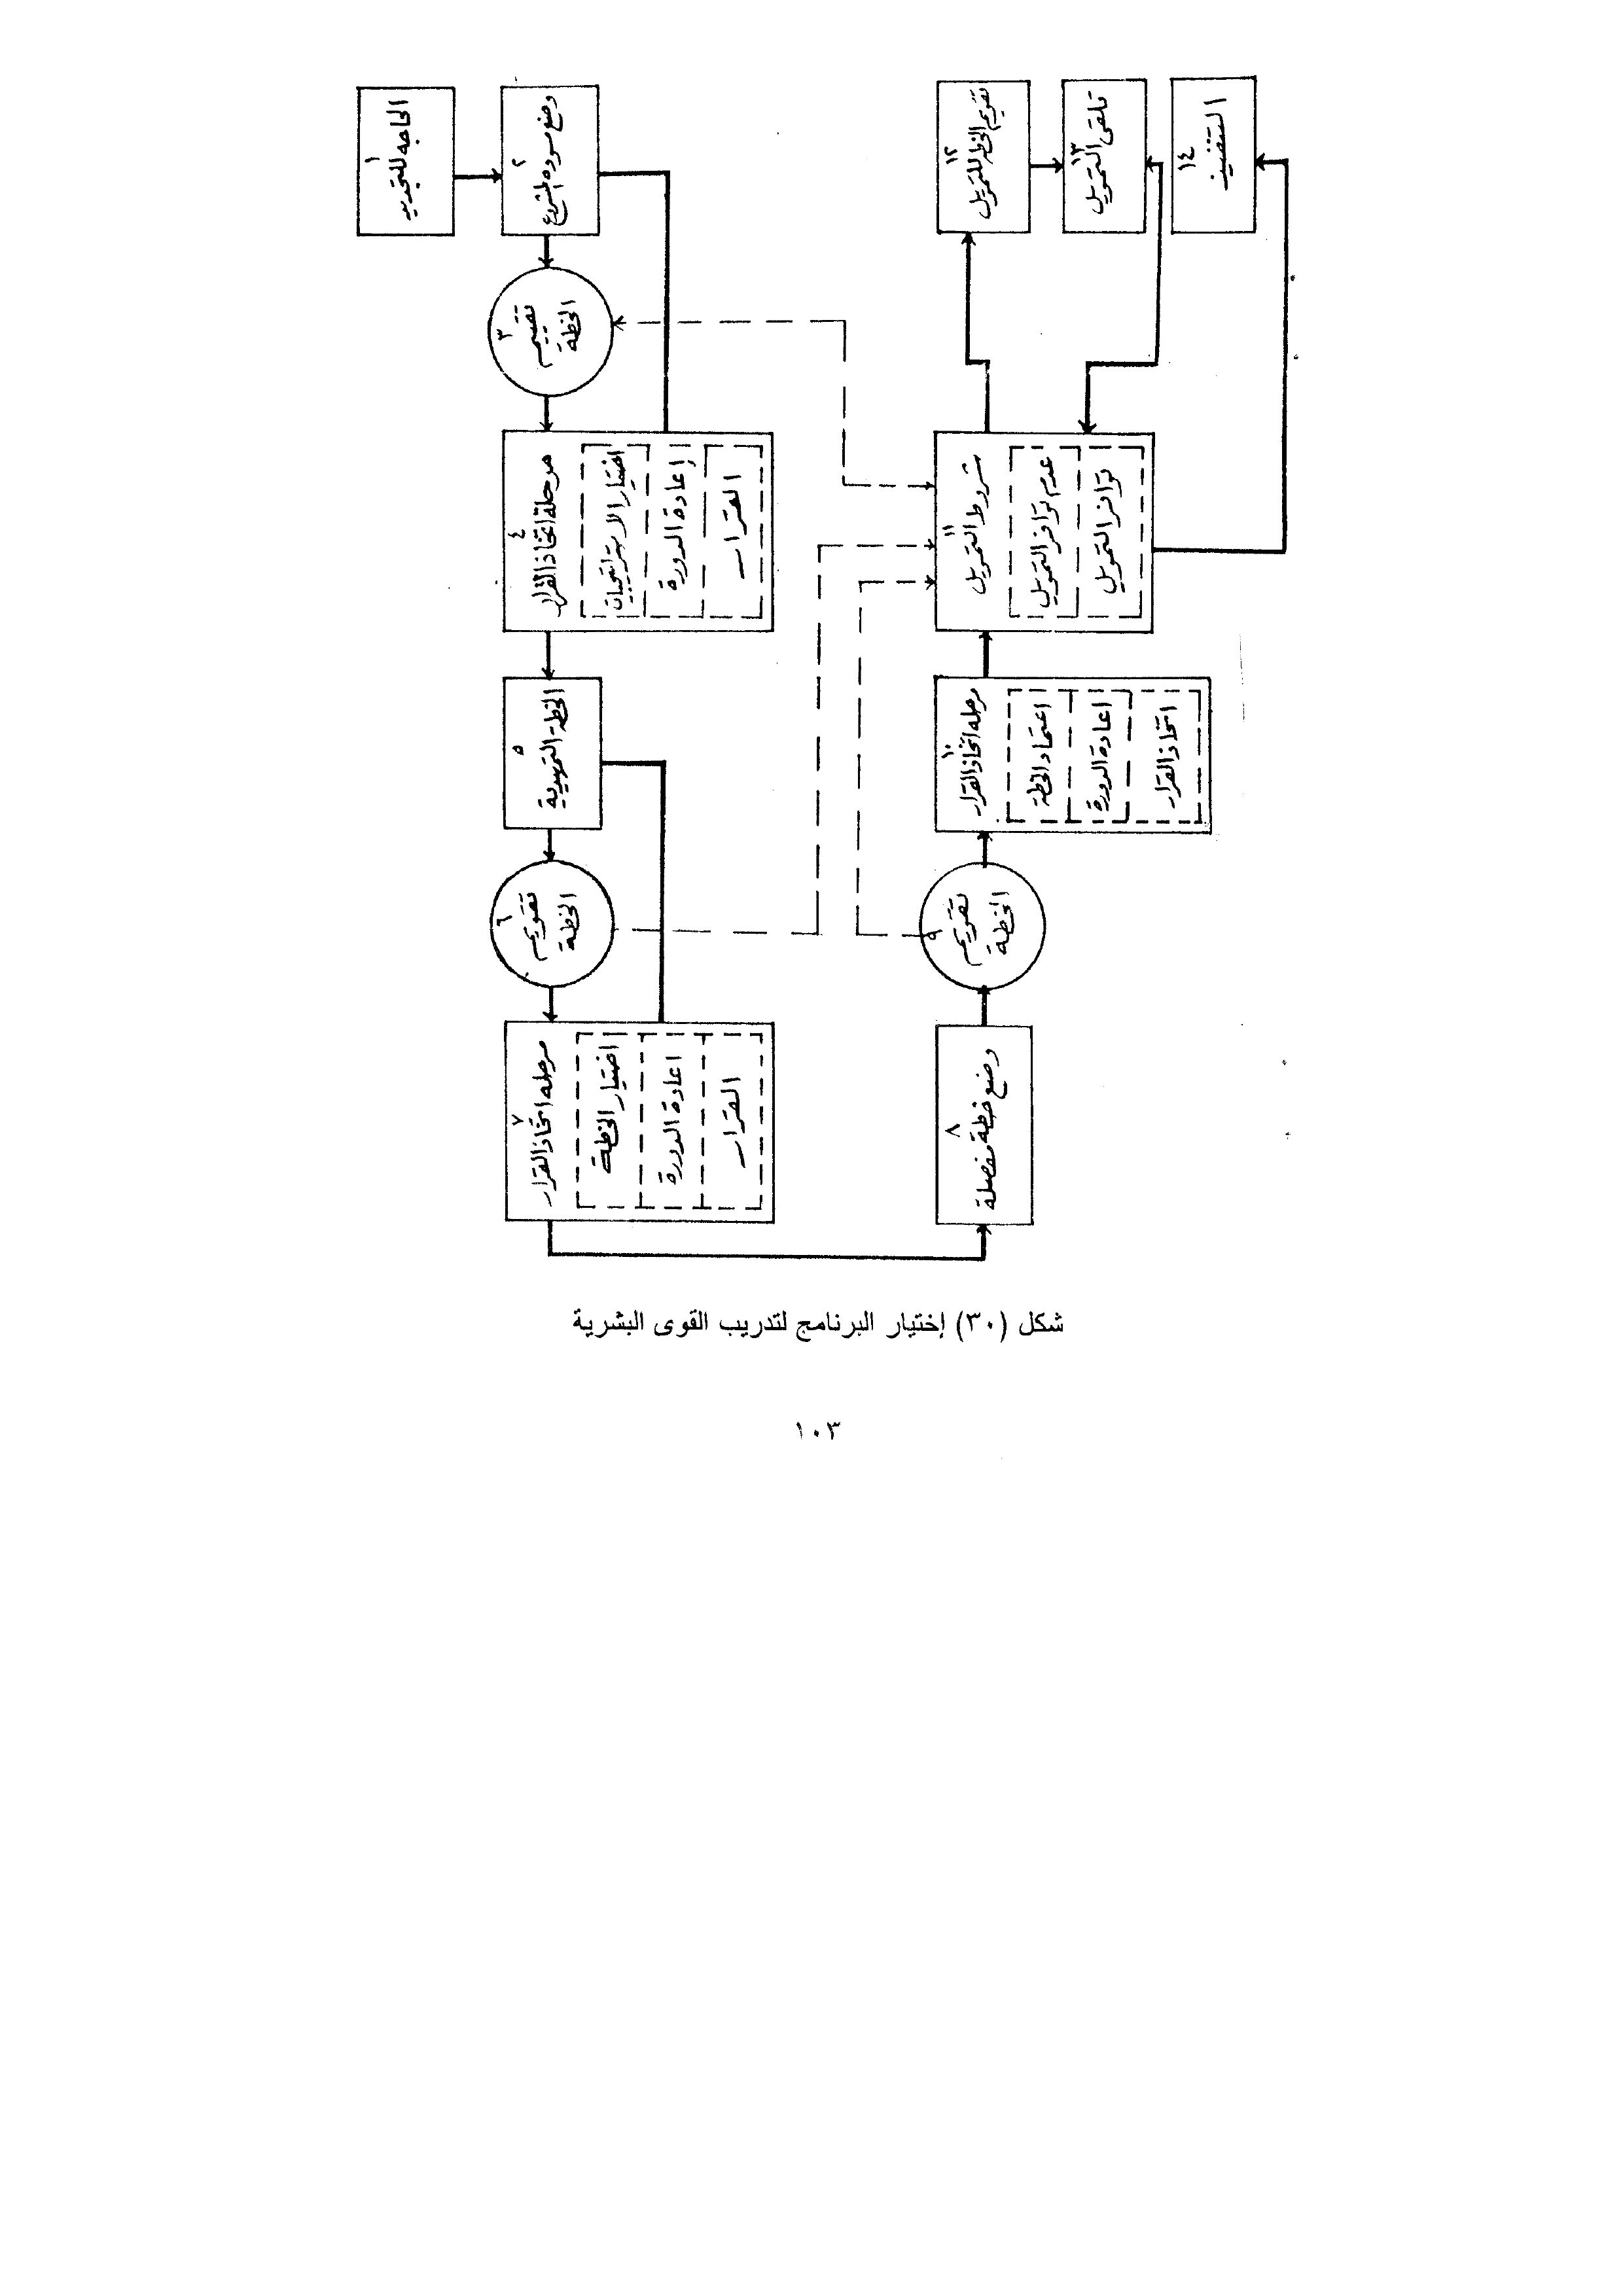 ١
الحاجه للتجديد
٢
وضع مسوده المشروع
٣
تقييم
الخطة
٤
مرحلة اتخاذ القرار
اختيار الاستراتيجيات
إعادة الدورة
القرار
٥
الخطة التمهيدية
٦
تقويم
الخطة
٧
مرحله اتخاذ القرار
اختيار الخطة
اعادة الدورة
القرار
٨
وضع خطة مفصلة
٩
تقويم
الخطة
١٠
مرحله اتخاذ القرار
اعتماد الخطة
اعادة الدورة
اتخاذ القرار
١١
شروط التمويل
عدم توافر التمويل
توافر التمويل
١٢
تقويم الخطه للتمويل
١٣
تلقى التمويل
١٤
التنفيذ
شكل (٣٠) إختيار البرنامج لتدريب القوى البشرية
١٠٣